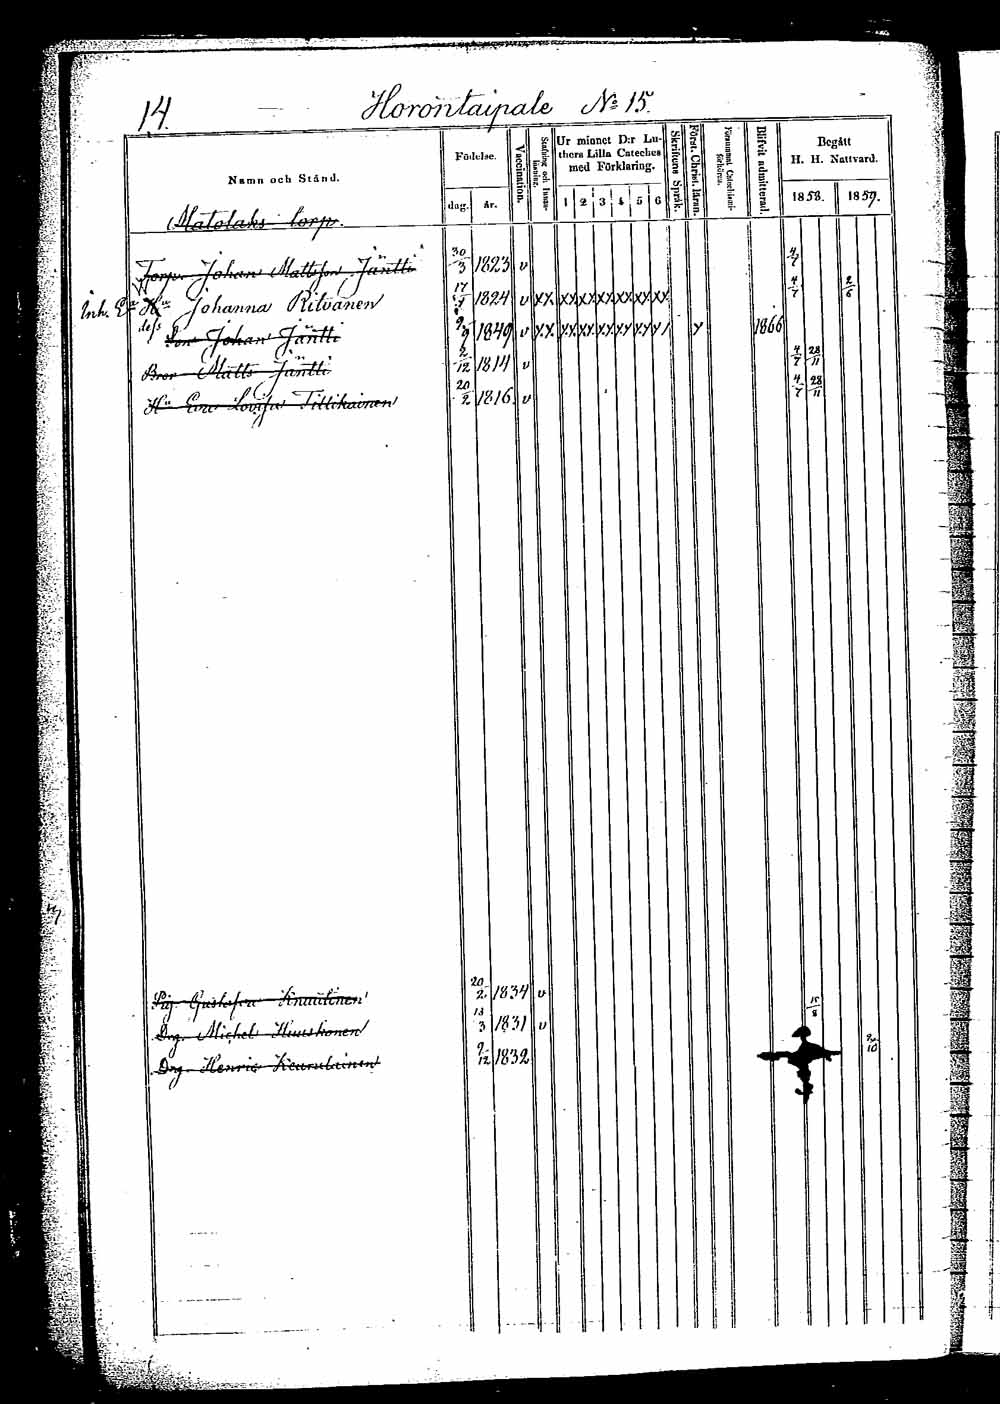 14.
Horontaipale No 15.
Namn och Stånd.
Födelse.
dag. år.
Vaccination.
Ur minnet D:r Luthers Lilla Cateches med Förklaring.
1 2 3 4 5 6
Skriftens Språk.
Först. Christ. läran.
Blifvit admitterad.
Begått
H. H. Nattvard.
1858. 1859.
Matolaks torp.
Torp. Johan Mattsson Jäntti 30/3 1823 v 4/7
Inh. Johanna Ritvanen 17 1824 v xx xx xx xx xx xx xx 4/7 2/6
dess Son Johan Jäntti 9/9 1849 v xx xx xx xx xx xx x/ x 1866
Bror Matts Jäntti 2/12 1814 v 4/7 28/11
Hu Eva Lovisa Tittikainen 20/2 1816. v 4/7 28/11
Pig. Gustafva Knuutinen 20/2 1834 v 15/8
Drg. Michel Huuskonen 13/3 1831 v
Drg. Henric 9/12 1832